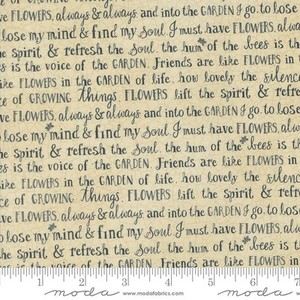 have FLOWERS, always & always and into the GARDEN I go. to lose
lose my mind & find my Soul. I must have FLOWERS, always
the Spirit & refresh the Soul. the hum of the bees is the
is the voice of the GARDEN. Friends are like FLOWERS in
like FLOWERS in the GARDEN of life. how lovely the silence
ce of GROWING things. FLOWERS lift the Spirit & refresh
have FLOWERS, always & always and into the GARDEN I go. to
to lose my mind & find my Soul. I must have FLOWERS, alway
e Spirit & refresh the Soul. the hum of the bees is th
s is the voice of the GARDEN. Friends are like FLOWERS
like FLOWERS in the GARDEN of life. how lovely the silence
ce of GROWING things. FLOWERS lift the Spirit & refre
have FLOWERS, always & always and into the GARDEN I go. to lose
to lose my mind & find my Soul. I must have FLOWERS, alway
e Spirit & refresh the Soul. the hum of the bees is t
is the voice of the GARDEN. Friends are like FLOWERS
1 2 3 4 5 6
moda www.modafabrics.com moda